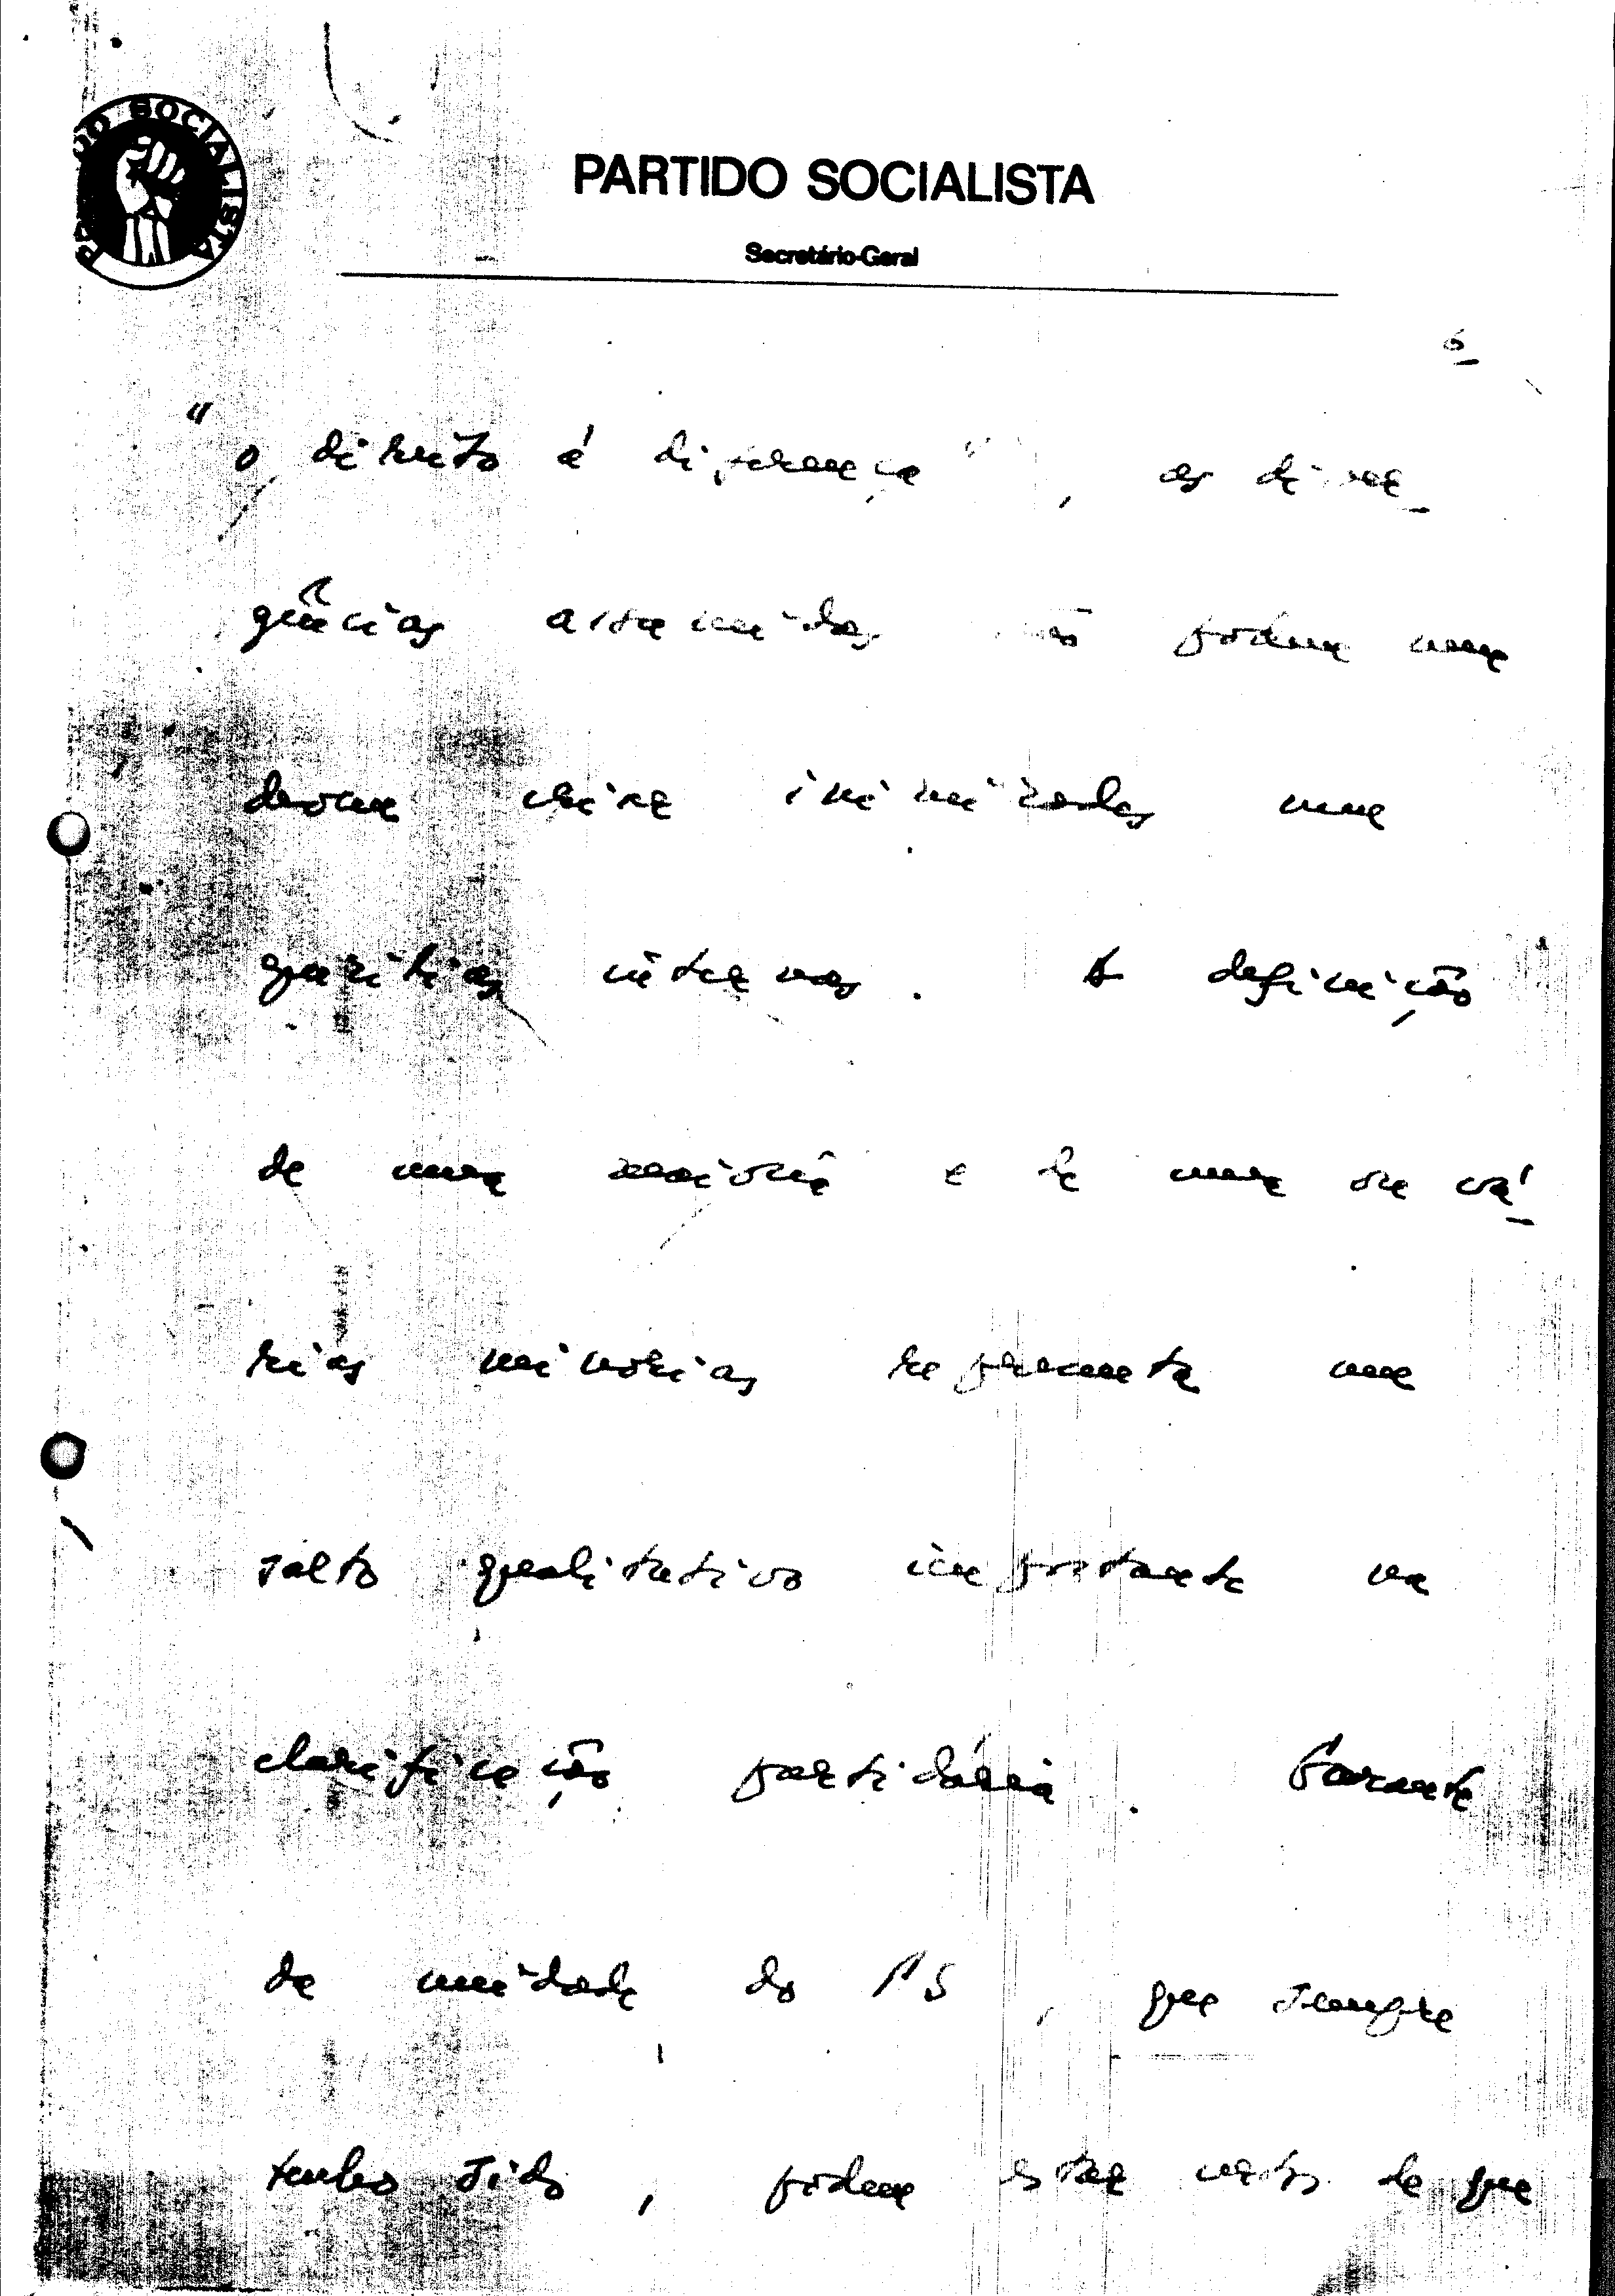 PARTIDO SOCIALISTA
PARTIDO SOCIALISTA
Secretário-Geral
6
"o direito à diferença", as diver-
gências assumidas não podem nem
devem criar inimizades nem
guerrilhas internas. A definição
de uma maioria e de uma ou vá-
rias minorias representa um
salto qualitativo importante na
clarificação partidária. Garante
da unidade do PS, que sempre
tenho sido, podem estar certos de que